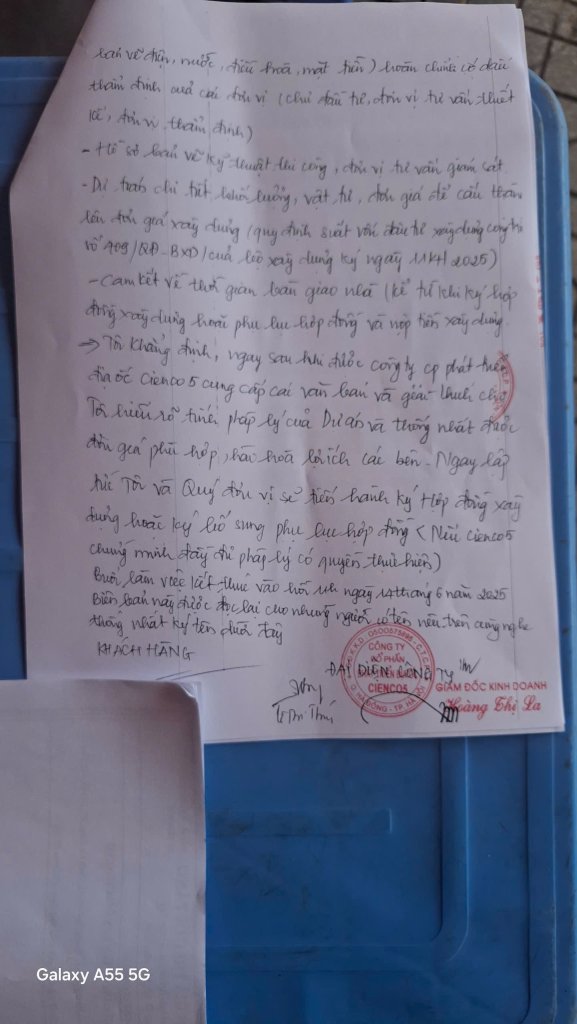 bản vẽ điện, nước, điều hoà, mặt tiền) hoàn chỉnh có dấu
thẩm định của các đơn vị (chủ đầu tư, đơn vị tư vấn thiết
kế, đơn vị thẩm định)
- Hồ sơ bản vẽ kỹ thuật thi công, đơn vị tư vấn giám sát.
- Dự toán chi tiết khối lượng, vật tư, đơn giá để cấu thành
lên đơn giá xây dựng (quy định suất vốn đầu tư xây dựng công trình
số 409/QĐ-BXD/của bộ xây dựng ký ngày 11/4/2025)
- Cam kết về thời gian bàn giao nhà (kể từ khi ký hợp
đồng xây dựng hoặc phụ lục hợp đồng và nộp tiền xây dựng.
→ Tôi khẳng định, ngay sau khi được công ty cp phát triển
địa ốc Cienco5 cung cấp các văn bản và giải trình cho
Tôi hiểu rõ tính pháp lý của Dự án và thống nhất được
đơn giá phù hợp, hào hoà lợi ích các bên. Ngay lập
tức Tôi và Quý đơn vị sẽ tiến hành ký Hợp đồng xây
dựng hoặc ký bổ sung phụ lục hợp đồng (Nếu Cienco5
chứng minh đầy đủ pháp lý có quyền thực hiện)
Buổi làm việc kết thúc vào hồi 11h ngày 14 tháng 6 năm 2025
Biên bản này được đọc lại cho những người có tên nêu trên cùng nghe
thống nhất ký tên dưới đây
KHÁCH HÀNG
ĐẠI DIỆN CÔNG TY
Đ.K.K.D: 0500575696 - C.T.C.P
CÔNG TY
CỔ PHẦN
CIENCO5
Q. HÀ ĐÔNG - TP. HÀ NỘI
GIÁM ĐỐC KINH DOANH
Hoàng Thị La
Galaxy A55 5G